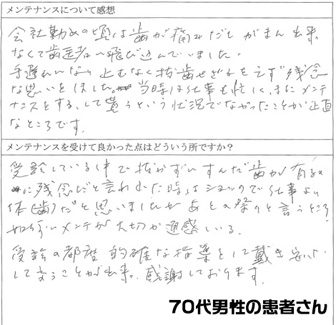 メンテナンスについて感想
会社勤めの頃は歯が痛みだしがまん出来
なくて歯医者に飛び込んでいました。
手遅れになり止むなく抜歯せざるをえず残念
な思いをしました。当時は仕事も忙しく、まだメンテ
ナンスをするして貰うという状況でなかったことが正直
なところです。
メンテナンスを受けて良かった点はどういう所ですか?
受診している中で抜かずにすんだ歯が有る
に残念だと言われた時はショックで仕事より
体(歯)だと思いましたがあとの祭りと言うところ
メンテが大切か痛感している。
受診の都度 的確な指導をして戴き
して きることが出来、感謝しております。
70代男性の患者さん